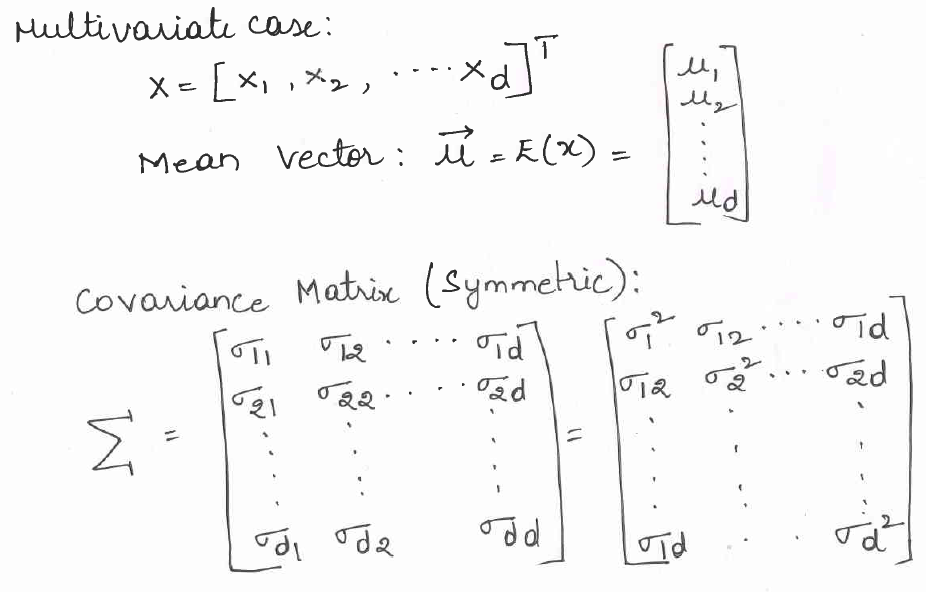 Multivariate case:
X = [x₁, x₂, ....x d]ᵀ
Mean Vector: μ⃗ = E(x) = [μ₁ μ₂ ⋮ μd]
Covariance Matrix (Symmetric):
Σ = [σ₁₁ σ₁₂ .... σ₁d = [σ₁² σ₁₂ .... σ₁d
σ₂₁ σ₂₂ .... σ₂d σ₁₂ σ₂² ... σ₂d
⋮ ⋮ ⋮ ⋮ ⋮ ⋮
σd₁ σd₂ σdd] σ₁d . . σd²]